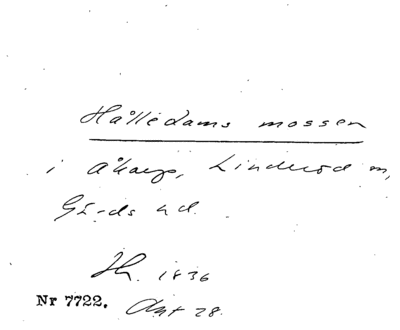 Hålledams mossen
i Åkarp, Linderöd sn,
Gärds hd.
Jh. 1836
Nr 7722. Akt 28.